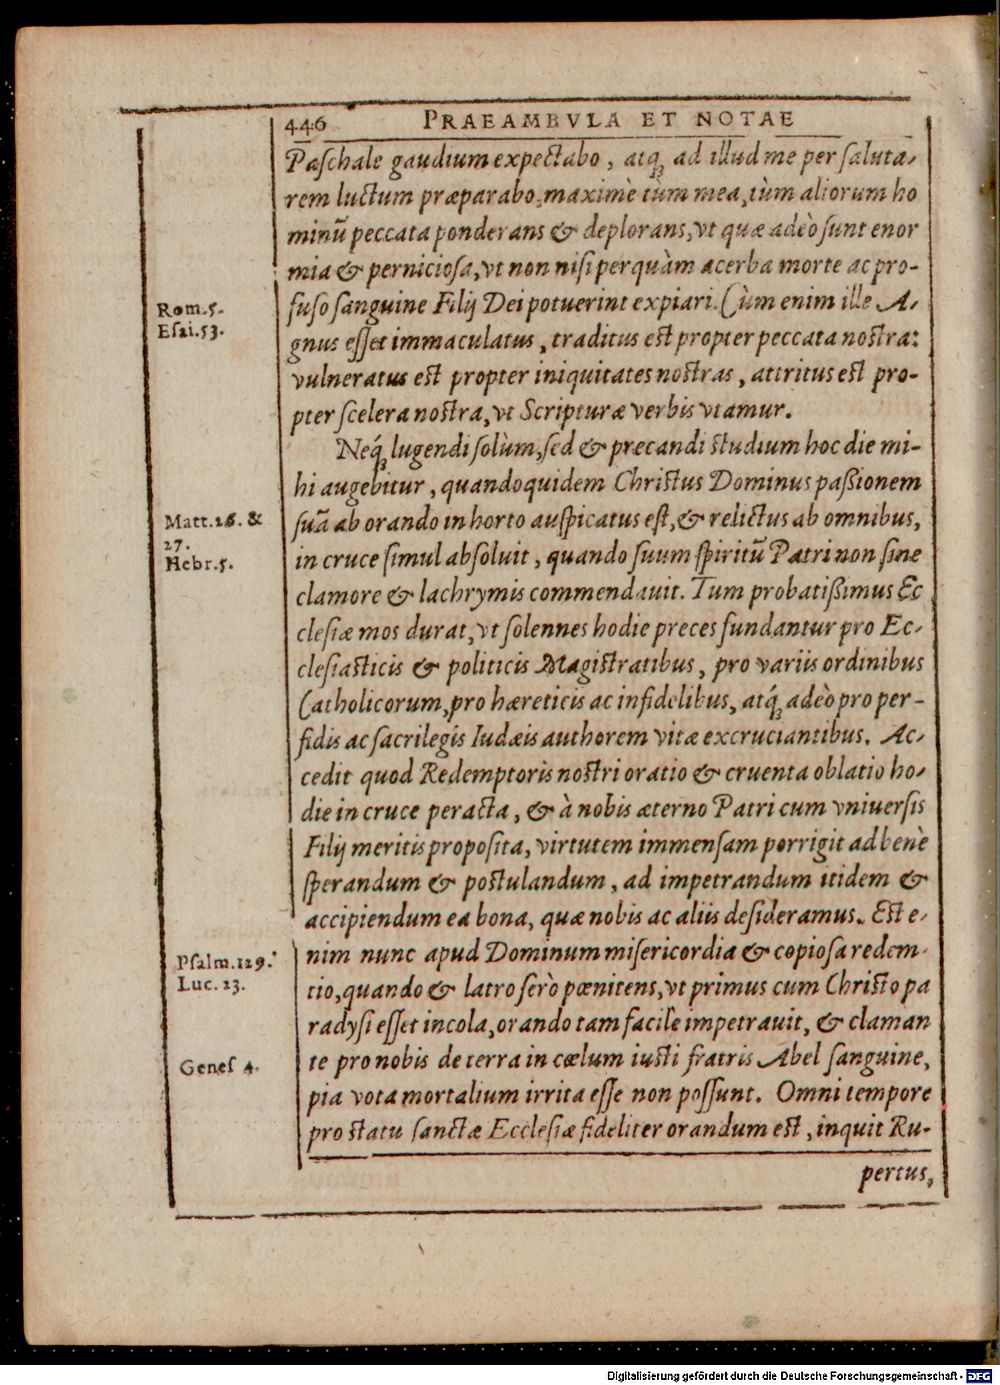 446 PRAEAMBVLA ET NOTAE
Paſchale gaudium expectabo, atq́ꝫ ad illud me per ſaluta-
rem luctum præparabo, maximè tùm mea, tùm aliorum ho
minū peccata ponderans & deplorans, vt quæ adeò ſunt enor
mia & pernicioſa, vt non niſi perquàm acerba morte ac pro-
fuſo ſanguine Filij Dei potuerint expiari. Cùm enim ille A-
Rom. 5.
Eſai. 53.
gnus eſſet immaculatus, traditus eſt propter peccata noſtra:
vulneratus eſt propter iniquitates noſtras, attritus eſt pro-
pter ſcelera noſtra, vt Scripturæ verbis vtamur.
Neq́ꝫ lugendi ſolùm, ſed & precandi ſtudium hoc die mi-
hi augebitur, quandoquidem Chriſtus Dominus paßionem
Matt. 26. &
27.
Hebr. 5.
ſuā ab orando in horto auſpicatus eſt, & relictus ab omnibus,
in cruce ſimul abſoluit, quando ſuum ſpiritū Patri non ſine
clamore & lachrymis commendauit. Tum probatißimus Ec
cleſiæ mos durat, vt ſolennes hodie preces fundantur pro Ec-
cleſiaſticis & politicis Magiſtratibus, pro variis ordinibus
Catholicorum, pro hæreticis ac infidelibus, atq́ꝫ adeò pro per-
fidis ac ſacrilegis Iudæis authorem vitæ excruciantibus. Ac-
cedit quod Redemptoris noſtri oratio & cruenta oblatio ho-
die in cruce peracta, & à nobis æterno Patri cum vniuerſis
Filij meritis propoſita, virtutem immenſam porrigit ad benè
ſperandum & poſtulandum, ad impetrandum itidem &
accipiendum ea bona, quæ nobis ac aliis deſideramus. Eſt e-
Pſalm. 129.
Luc. 23.
nim nunc apud Dominum miſericordia & copioſa redem-
tio, quando & latro ſerò pœnitens, vt primus cum Chriſto pa
radyſi eſſet incola, orando tam facilè impetrauit, & claman
Geneſ 4.
te pro nobis de terra in cœlum iuſti fratris Abel ſanguine,
pia vota mortalium irrita eſſe non poſſunt. Omni tempore
pro ſtatu ſanctæ Eccleſiæ fideliter orandum eſt, inquit Ru-
pertus,
Digitalisierung gefördert durch die Deutsche Forschungsgemeinschaft - DFG